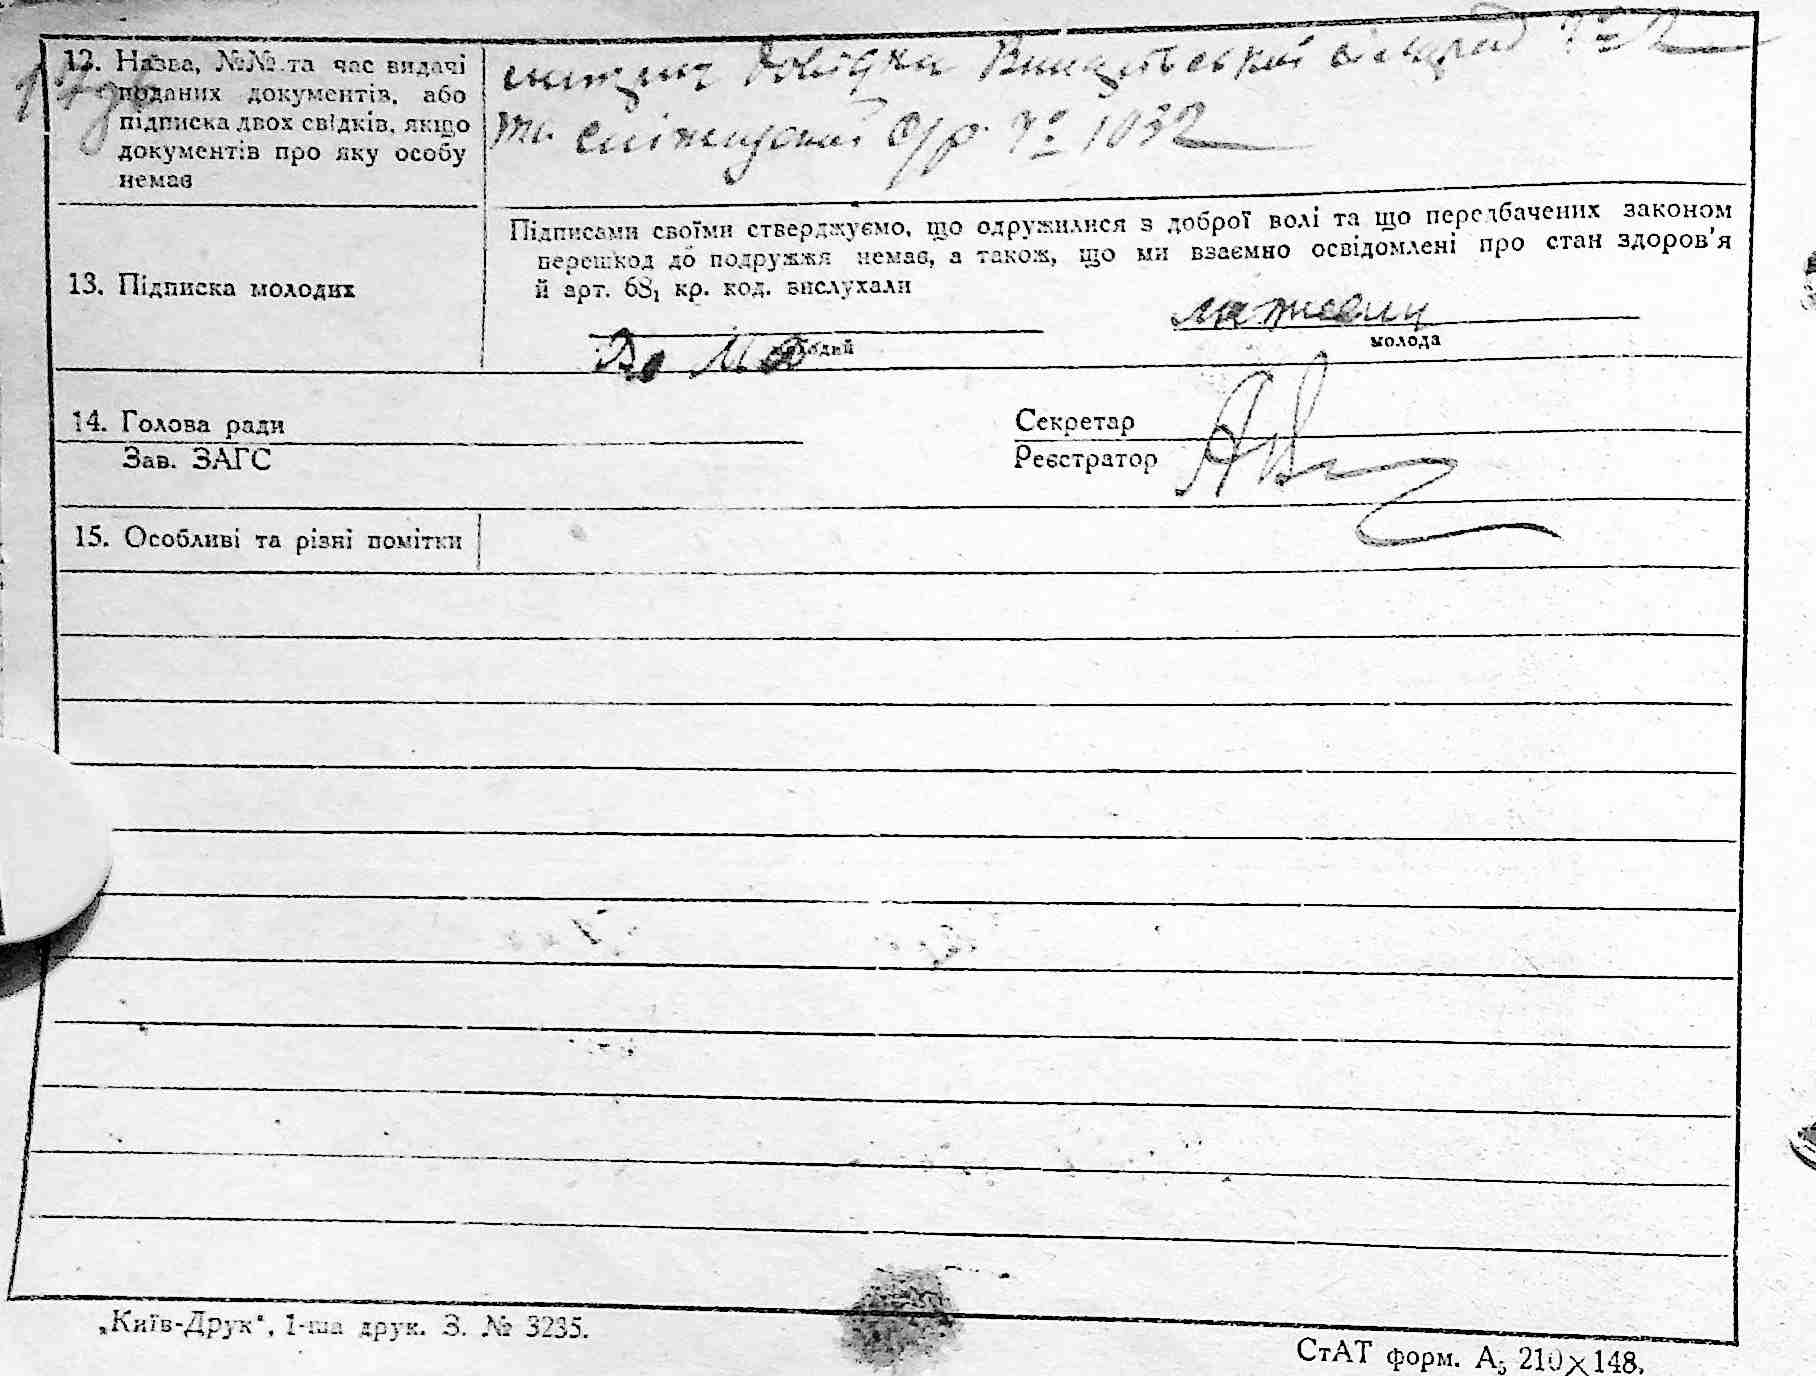 12. Назва, №№ та час видачі
поданих документів, або
підписка двох свідків, якщо
документів про яку особу
немає
Довідка № 2
та с/р. № 1032
Підписами своїми стверджуємо, що одружилися з доброї волі та що передбачених законом
перешкод до подружжя немає, а також, що ми взаємно освідомлені про стан здоров'я
й арт. 68₁ кр. код. вислухали
13. Підписка молодих
молодий
молода
14. Голова ради
Секретар
Зав. ЗАГС
Реєстратор
15. Особливі та різні помітки
„Київ-Друк“, 1-ша друк. З. № 3235.
СтАТ форм. А₅ 210×148.